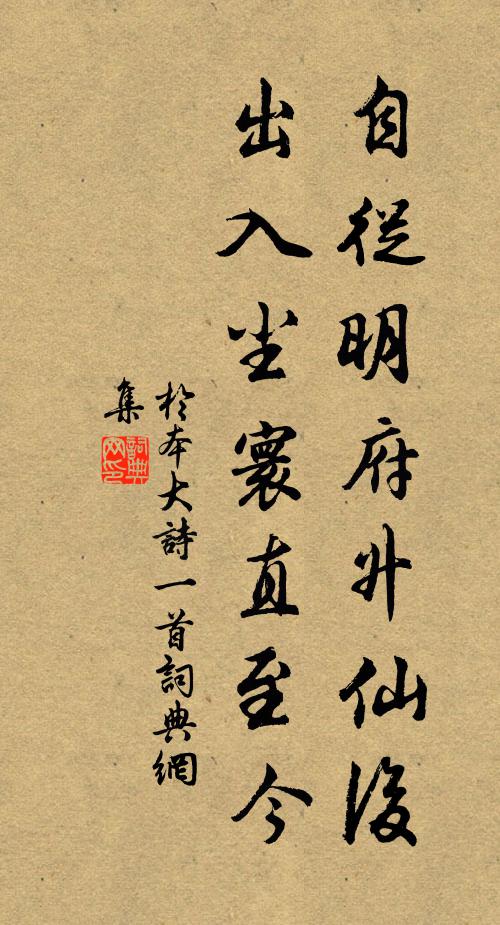 自從明府升仙後
出入尘寰直至今
於本大詩一首詞典網
集
詞典
网印